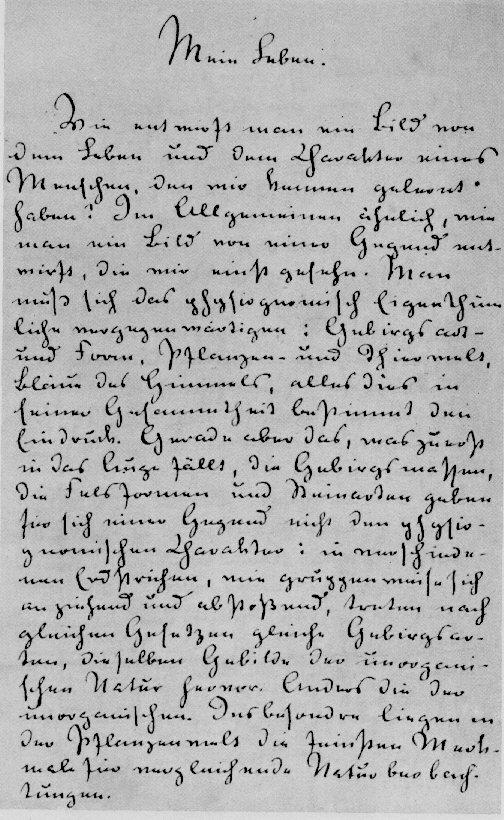 Mein Leben.
Wie entwirft man ein Bild von
dem Leben und dem Charakter eines
Menschen, den wir kennen gelernt
haben? Im Allgemeinen ähnlich, wie
man ein Bild von einer Gegend ent-
wirft, die wir einst gesehn. Man
muß sich das physiognomisch Eigenthüm
liche vergegenwärtigen: Gebirgsart-
und Form, Pflanzen- und Thierwelt,
Bläue des Himmels, alles dies in
seiner Gesammtheit bestimmt den
Eindruck. Gerade aber das, was zuerst
in das Auge fällt, die Gebirgsmassen,
die Felsformen und Steinarten geben
für sich einer Gegend nicht den physio-
gnomischen Charakter: in verschiede-
nen Erdstrichen, wie gruppenweise sich
anziehend und abstoßend, treten nach
gleichen Gesetzen gleiche Gebirgsar-
ten, dieselben Gebilde der unorgani-
schen Natur hervor. Anders die der
unorganischen. Insbesondre liegen in
der Pflanzenwelt die feinsten Merk-
male für vergleichende Naturbeobach-
tungen.